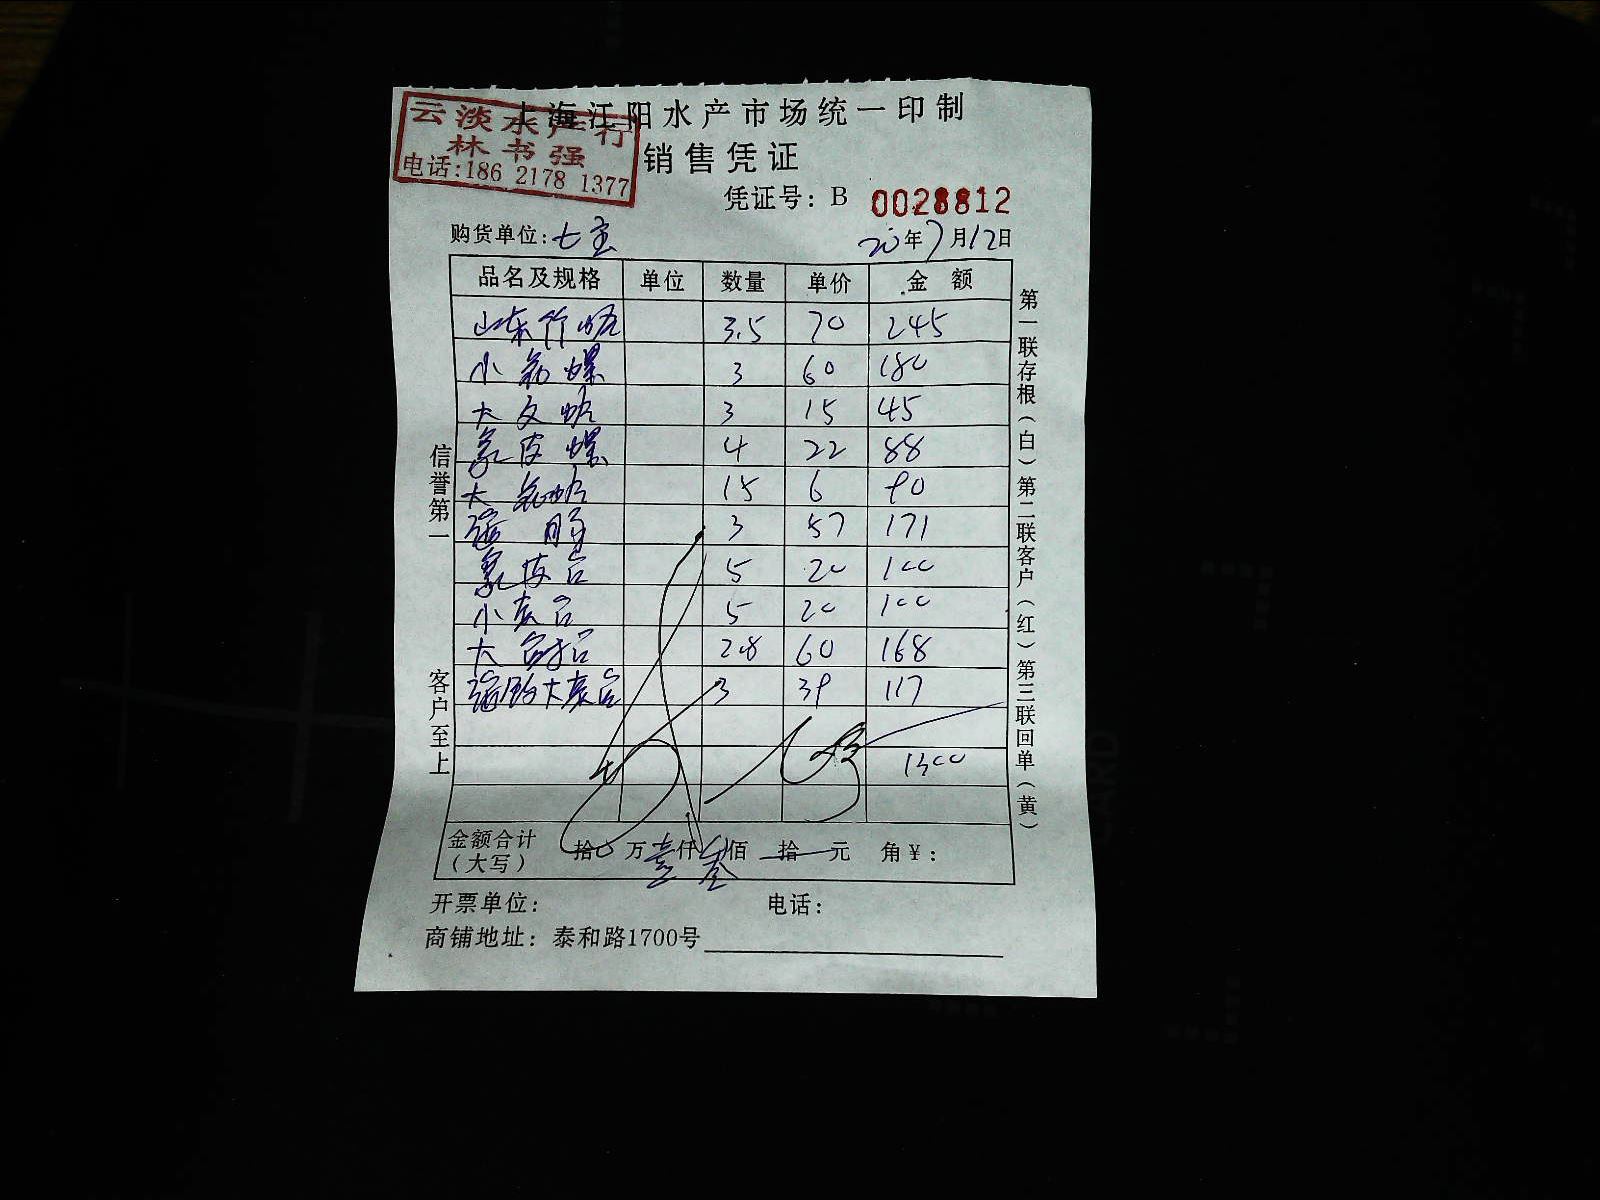 上海江阳水产市场统一印制
云淡水产行
林书强
电话:186 2178 1377
销售凭证
凭证号: B 0028812
购货单位: 七宝 20年7月12日
品名及规格 单位 数量 单价 金额
山东竹蛤 3.5 70 245
小 螺 3 60 180
大文蛤 3 15 45
象皮螺 4 22 88
大 蛤 15 6 90
3 57 171
象拔 5 20 100
小 5 20 100
大 2.8 60 168
大 3 39 117
1300
金额合计(大写) 拾 万 壹 仟 叁 佰 拾 元 角 ¥:
开票单位: 电话:
商铺地址: 泰和路1700号
信誉第一 客户至上
第一联存根(白)第二联客户(红)第三联回单(黄)